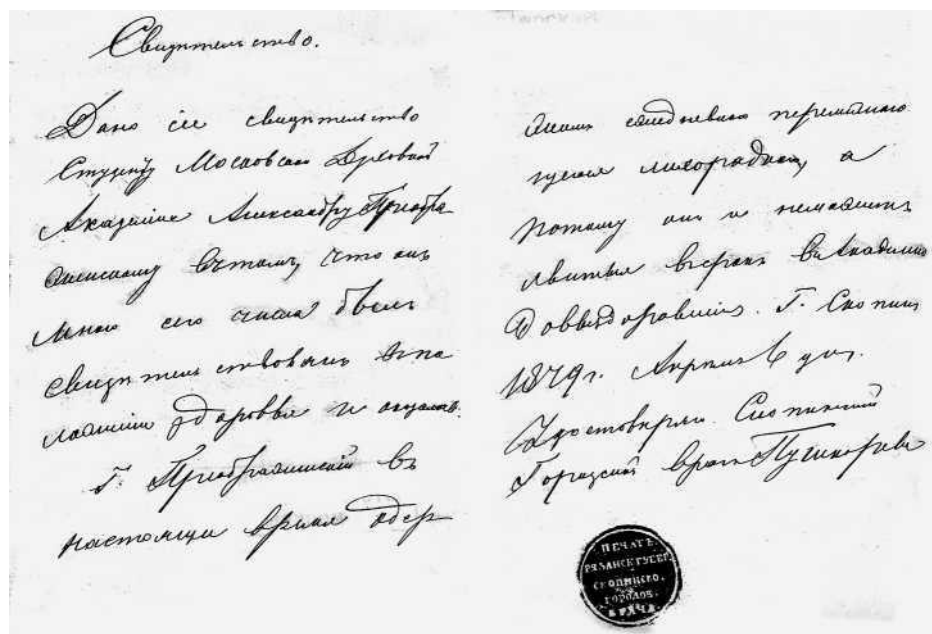 Свидѣтельство.
Дано сіе свидѣтельство
Студенту Московской Духовной
Академіи Александру Преобра
женскому въ томъ, что онъ
мною сего числа былъ
свидѣтельствованъ въ по
ложеніи здоровья и оказалось:
Г. Преображенскій въ
настоящее время одер
жимъ ежедневною перемежаю
щеюся лихорадкою, а
потому онъ и неможетъ
явиться въ срокъ въ Академію
до выздоровленія. Г. Скопинъ
1879 г. Апрѣля 6 дня.
Удостовѣряю Скопинскій
Городской Врачъ
ПЕЧАТЬ
РЯЗАНСК. ГУБЕР.
СКОПИНСКО.
ГОРОДОВ.
ВРАЧА